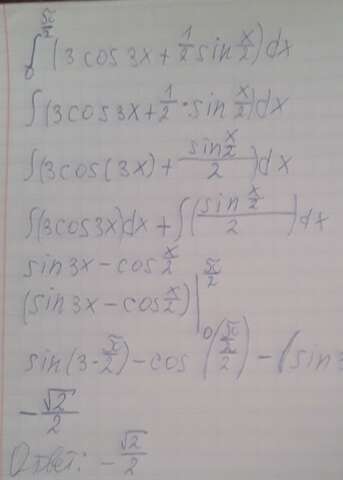 ∫₀^(π/2) (3 cos 3x + 1/2 sin x/2) dx
∫(3cos3x + 1/2 · sin x/2)dx
∫(3cos(3x) + (sin x/2)/2)dx
∫(3cos3x)dx + ∫((sin x/2)/2)dx
sin3x - cos x/2
(sin3x - cos x/2)|₀^(π/2)
sin(3·π/2) - cos((π/2)/2) - (sin 3
- √2/2
Ответ: - √2/2